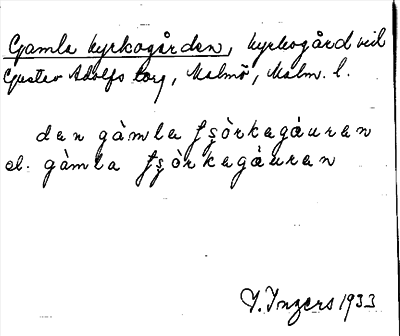 Gamla kyrkogården, kyrkogård vid
Gustav Adolfs torg, Malmö, Malm. l.
den gàmla fşòrkagáuran
el. gàmla fşòrkagáuran
I. Ingers 1933